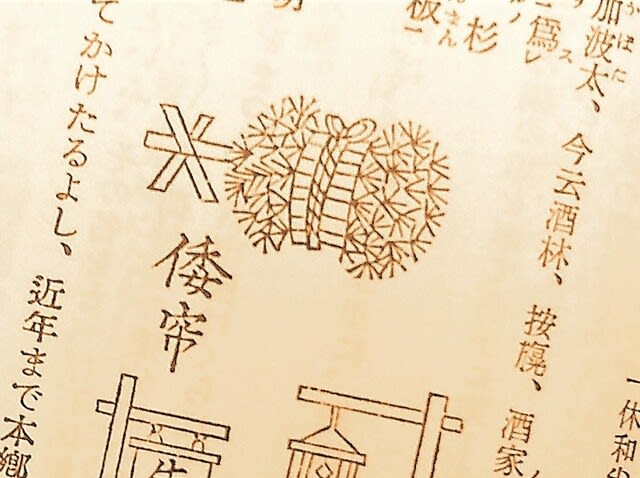 一休和
加波太、今云酒林、按、酒家
爲レ
杉
板ニ
倭帘
てかけたるよし、近年まで本郷